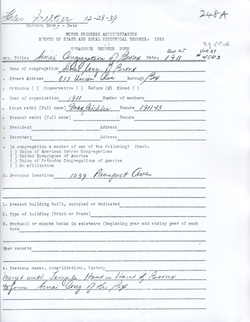 12-28-39
248A
WORKS PROGRESS ADMINISTRATION
SURVEY OF STATE AND LOCAL HISTORICAL RECORDS: 1939
SYNAGOGUE RECORDS FORM
Title: Sinai Congregation of Bronx Date: 1911
1. Name of congregation
2. Street Address 813 Union Ave Borough Bx
3. Orthodox ( ) Conservative ( ) Reform (x) Mixed ( )
4. Year of organization 1911 Number of members
5. First rabbi (full name) Max Reichler Tenure 1911-43
6. Present rabbi (full name) Tenure
7. President
8. Secretary Address
9. Is congregation a member of one of following? (Check)
( ) Union of American Hebrew Congregations
( ) United Synagogues of America
( ) Union of Orthodox Congregations of America
( ) No affiliation
0. Previous locations 1039 Prospect Ave
1. Present building built, occupied or dedicated
2. Type of building (brick or frame)
3. Protocol or minute books in existence (beginning year and ending year of each book
Other records
4. Previous names, consolidations, history
merged with Temple Hand in Hand of Bronx
to form Sinai Cong of the Bx